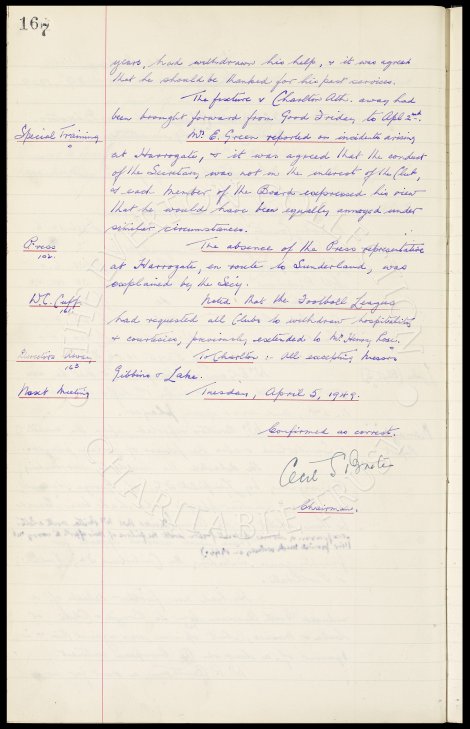 167
years, had withdrawn his help, & it was agreed
that he should be thanked for his past services.
The fixture v Charlton Ath. away had
been brought forward from Good Friday to Apl 2nd.
Special Training
Mr E. Green reported on incidents arising
at Harrogate, & it was agreed that the conduct
of the Secretary was not in the interest of the Club,
& each member of the Board expressed his view
that he would have been equally annoyed under
similar circumstances.
Press
The absence of the Press representative
162.
at Harrogate, en route to Sunderland, was
explained by the Secy.
W.C. Cuff
Noted that the Football League
161.
had requested all Clubs to withdraw hospitalities
& courtesies, previously extended to Mr Henry Rose.
Directors Away
To Charlton :- All excepting Messrs
163
Gibbins & Lake.
Next Meeting
Tuesday, April 5, 1949.
Confirmed as correct.
Cecil S Baxter
Chairman.
CHARITABLE TRUST